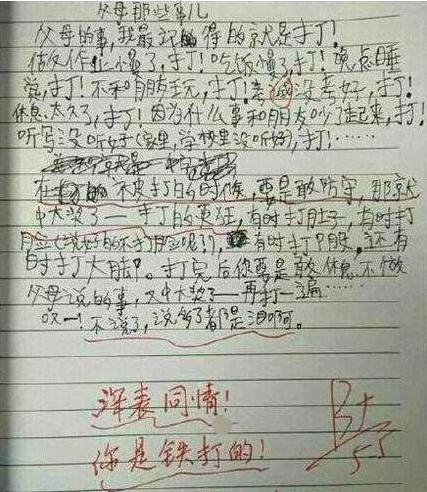 父母那些事儿
父母的事，我最记得的就是打！
做作业慢了，打！吃饭慢了，打！晚点睡
觉，打！不和朋友玩，打！考试没考好，打！
休息太久了，打！因为什么事和朋友吵了起来，打！
听写没听好(家里，学校里没听好)，打……
在 不皮打的时候，要是敢防守，那就
中大奖了——打的更狂，有时打肚子，有时打
脸(说好的不打脸呢？)，有时打屁股，还有
时打大脚。打完后你要是敢休息不做
父母说的事，又中大奖了——再打一遍……
哎——！不说了，说多了都是泪啊。
深表同情！
你是铁打的！
B+
5.5